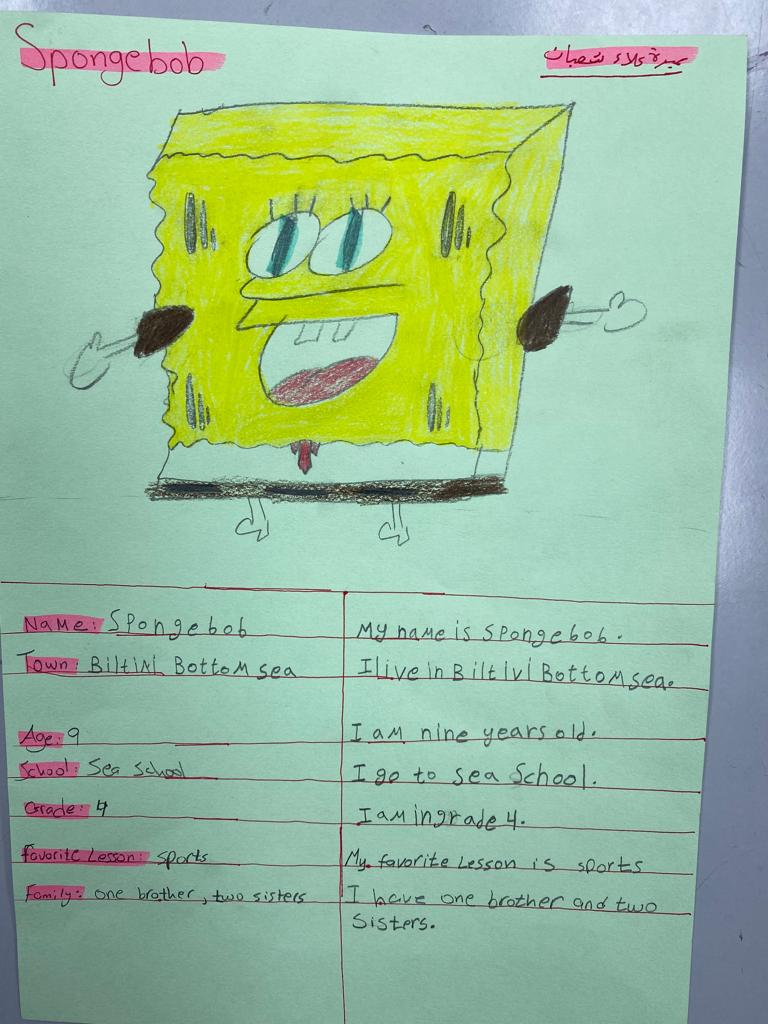 Spongebob
سميرة علاء شعبان
Name: Spongebob
My name is Spongebob.
Town: Biltivi Bottom sea
I live in Biltivi Bottom sea.
Age: 9
I am nine years old.
School: Sea School
I go to sea School.
Grade: 4
I am in grade 4.
Favorite Lesson: sports
My favorite Lesson is sports
Family: one brother, two sisters
I have one brother and two
Sisters.